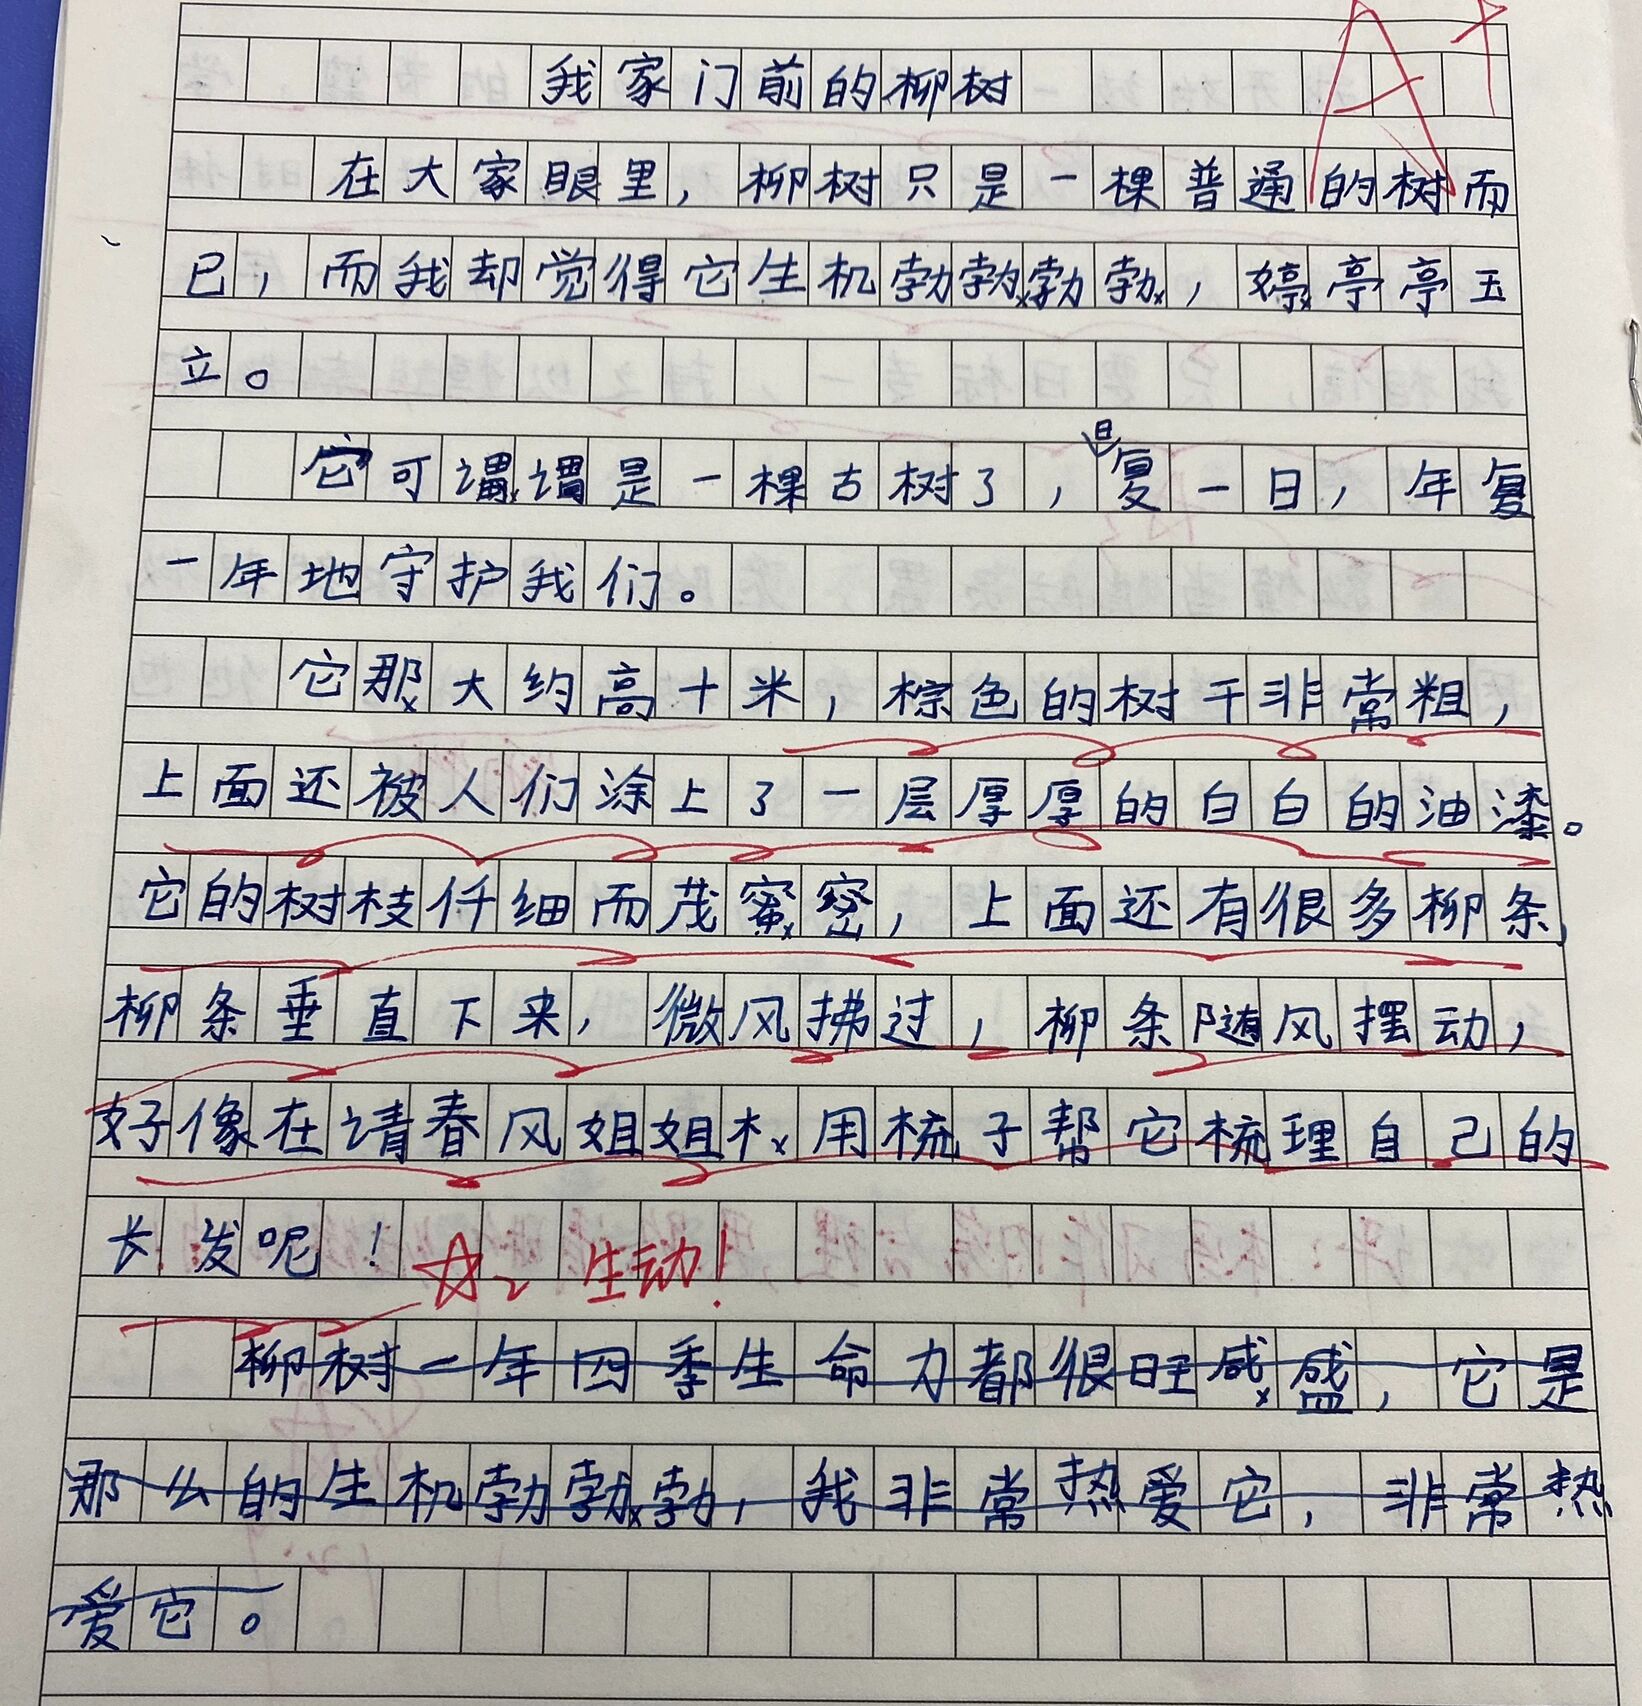 A+
我家门前的柳树
在大家眼里，柳树只是一棵普通的树而
已，而我却觉得它生机勃勃勃勃，婷亭亭玉
立。
它可谓谓是一棵古树了，日复一日，年复
一年地守护我们。
它那大约高十米，棕色的树干非常粗，
上面还被人们涂上了一层厚厚的白白的油漆。
它的树枝仟细而茂蜜密，上面还有很多柳条，
柳条垂直下来，微风拂过，柳条随风摆动，
好像在请春风姐姐木用梳子帮它梳理自己的
长发呢！
☆2 生动！
柳树一年四季生命力都很旺咸盛，它是
那么的生机勃勃勃，我非常热爱它，非常热
爱它。